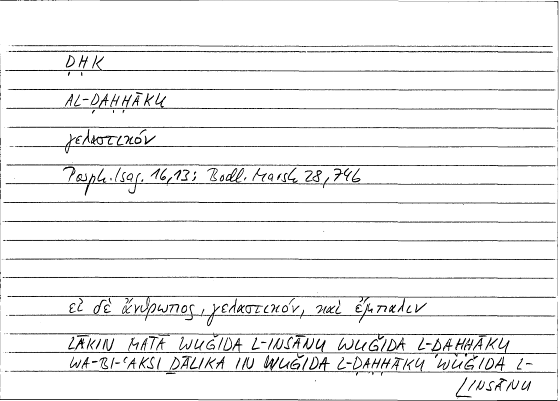 ḌḤK
AL-ḌAḤḤĀKU
γελαστικόν
Porph. Isag. 16,13; Bodl. Marsh 28, 746
εἰ δὲ ἄνθρωπος, γελαστικόν, καὶ ἔμπαλιν
LĀKIN MATĀ WUǦIDA L-INSĀNU WUǦIDA L-ḌAḤḤĀKU
WA-BI-ʿAKSI ḎĀLIKA IN WUǦIDA L-ḌAḤḤĀKU WUǦIDA L-
INSĀNU